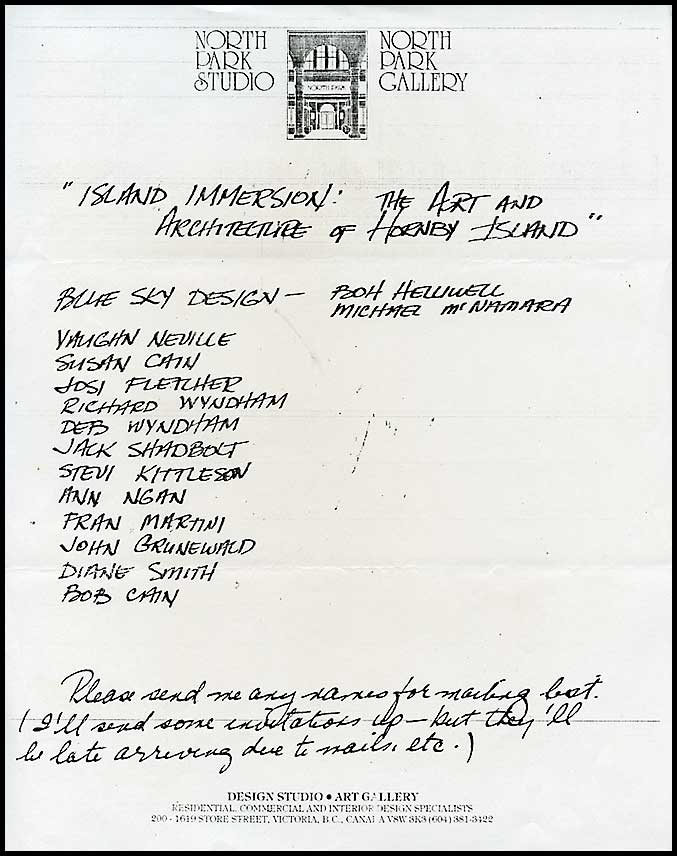 NORTH PARK STUDIO
NORTH PARK
NORTH PARK GALLERY
"ISLAND IMMERSION: THE ART AND
ARCHITECTURE OF HORNBY ISLAND"
BLUE SKY DESIGN — BOH HELLIWELL
MICHAEL McNAMARA
VAUGHN NEVILLE
SUSAN CAIN
JOSI FLETCHER
RICHARD WYNDHAM
DEB WYNDHAM
JACK SHADBOLT
STEVI KITTLESON
ANN NGAN
FRAN MARTINI
JOHN GRUNEWALD
DIANE SMITH
BOB CAIN
Please send me any names for mailing list.
(I'll send some invitations up — but they'll
be late arriving due to mails, etc.)
DESIGN STUDIO • ART GALLERY
RESIDENTIAL, COMMERCIAL AND INTERIOR DESIGN SPECIALISTS
200 - 1619 STORE STREET, VICTORIA, B.C., CANADA V8W 3K3 (604) 381-3422